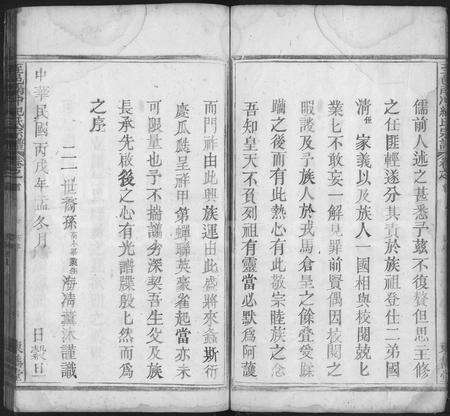 儒前人述之甚悉予茲不復贅但思主修
之任匪輕遂分其責於族祖登仕二弟國
清 家義以及族人一國相與校閱兢匕
業匕不敢妄一解見罪前賢偶因校閱之
暇謬及予族人於戎馬倉皇之餘疊受蹂
躪之後而有此熱心有此敬宗睦族之念
吾知皇天不負列祖有靈當必默為阿護
而門祚由此興族運由此盛將來螽斯衍
慶瓜瓞呈祥甲第蟬聯英豪雀起當亦未
可限量也予不揣譾劣深契吾生父及族
長承先啟後之心有光譜牒殷匕然而為
之序
中華民國丙戌年孟冬月 日穀旦
二二世裔孫 海清薰沐謹識